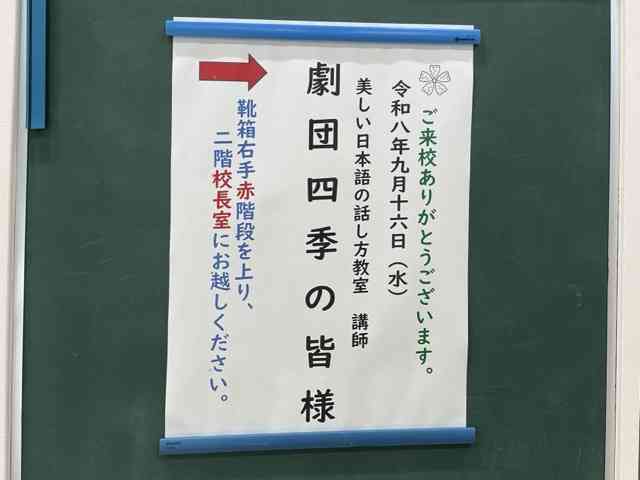 ご来校ありがとうございます。
令和八年九月十六日（水）
美しい日本語の話し方教室　講師
劇団四季の皆様
靴箱右手赤階段を上り、
二階校長室にお越しください。